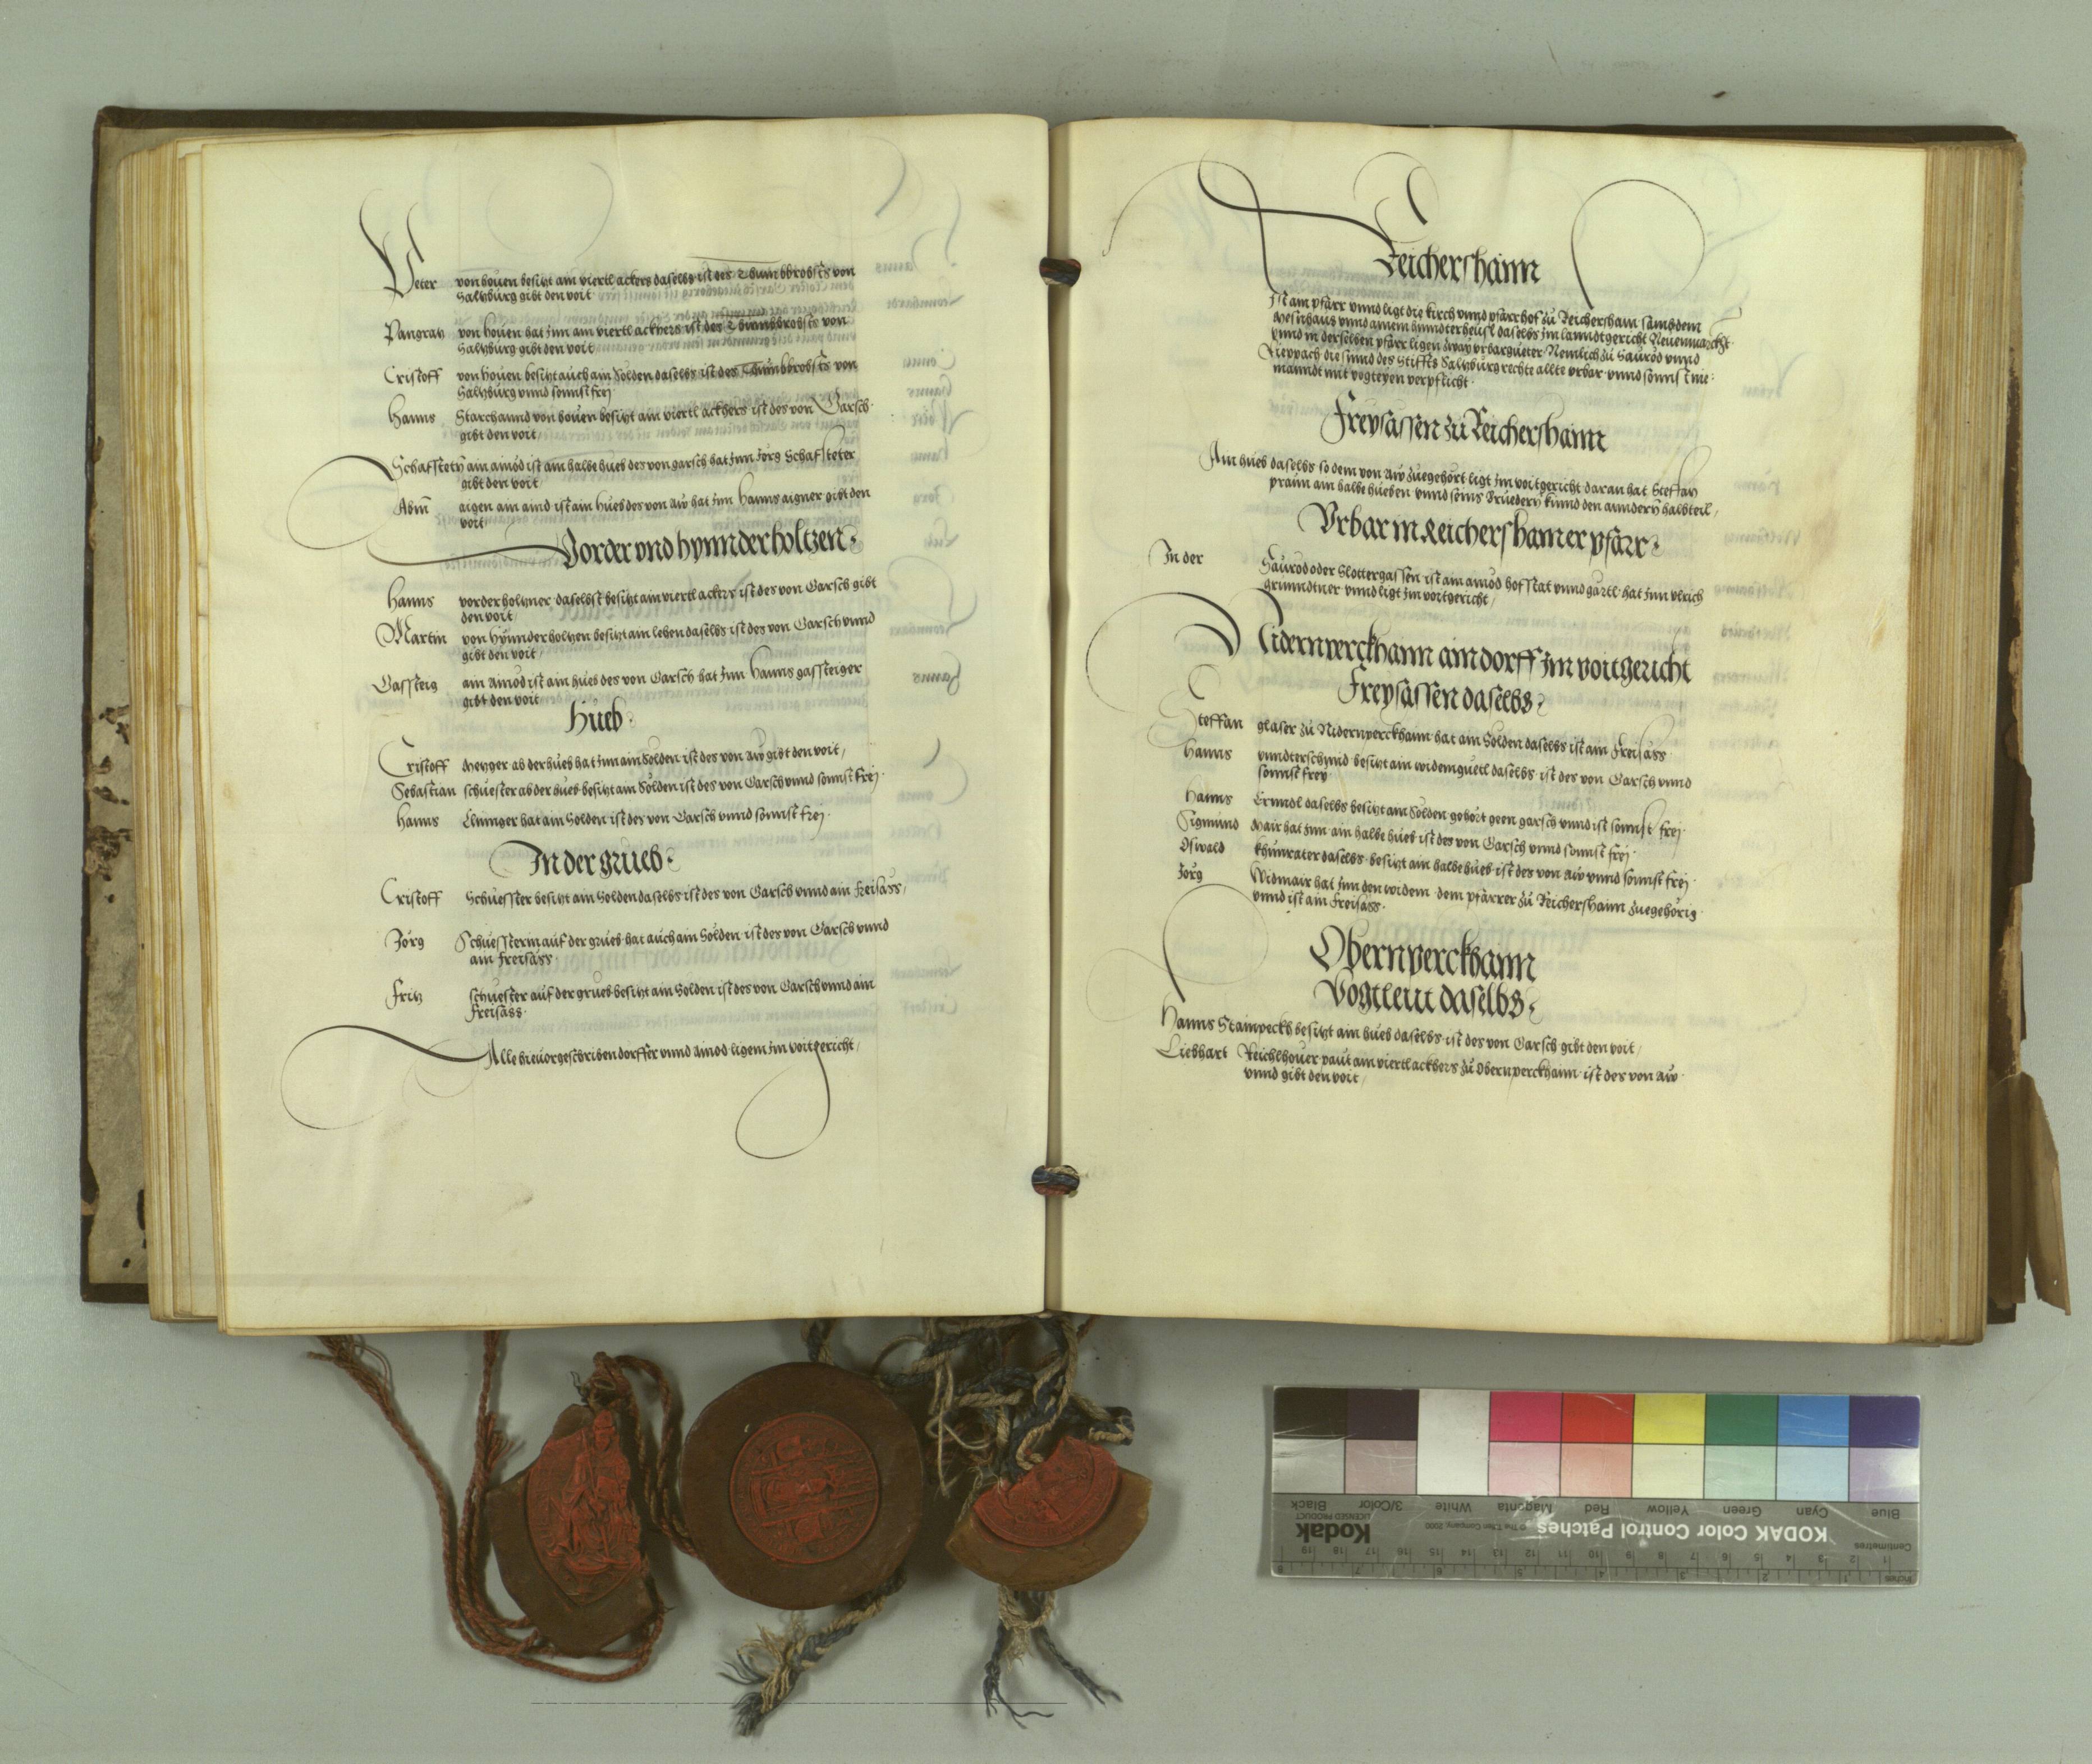 Peter von houen besitzt ain viertl ackers daselbs ist des Thumbbrobsts von
Saltzburg gibt den voit
Pangratz von houen hat jnn ain viertl ackhers ist des Thumbbrobsts von
Saltzburg gibt den voit
Cristoff von houen besitzt auch ain Sölden daselbs ist des Thumbbrobsts von
Saltzburg vnnd sonnst frej
Hanns Starchannd von houen besitzt ain viertl ackhers ist des von Garsch
gibt den voit
Schafstety ain ainöd ist ain halbe hueb des von garsch hat jnn Jörg Schafsteter
gibt den voit
aigen ain aind ist ain hueb des von Aw hat jnn Hanns aigner gibt den
voit
Vorder vnd hynnderholtzen
Hanns vorderholtzner daselbst besitzt ain viertl ackers ist des von Garsch gibt
den voit
Martin von hynnderholtzen besitzt ain lehen daselbs ist des von Garsch vnnd
gibt den voit
Gassteig ain Ainöd ist ain hueb des von Garsch hat jnn Hanns gassteiger
gibt den voit
Hueb
Cristoff Metzger ab der hueb hat jnn ain Sölden ist des von Aw gibt den voit
Sebastian schuester ab der hueb besitzt ain Sölden ist des von Garsch vnnd sonnst frej
Hanns hat ain Sölden ist des von Garsch vnnd sonnst frej
In der grueb
Cristoff Schuesster besitzt ain Sölden daselbs ist des von Garsch vnnd ain freisäss
Jörg Schuessterin auf der grueb hat auch ain Sölden ist des von Garsch vnnd
ain freisäss
Fritz schuester auf der grueb besitzt ain Sölden ist des von Garsch vnnd ain
freisäss
Alle hieuorgeschriben dorffer vnnd ainöd ligen im voitgericht
Reichershaim
Ist ain pfarr vnnd ligt die kirch vnnd pfarrhof zu Reichersham sambdem
Mesnhaus vnnd ainem hynndterheusl daselbs jm lanndtgericht Neuenmarckht
vnnd in derselben pfarr ligen zway vrbargueter Nemlich zu Sauröd vnnd
Rieppach die sinnd des Stiffts Saltzburg rechte allte vrbar vnnd sonnst nie
manndt mit vogteyen verpflicht
Freysässen zu Reichershaim
Ain hueb daselbs so dem von Aw zuegehört ligt jm voitgericht daran hat Steffan
praun ain halbe hueben vnnd seins bruedern kinnd den anndern halbteil
Vrbar in Reichershamer pfarr
In der Sauröd oder Slottergassen ist ain ainöd hofstat vnnd gärtl hat jnn vlrich
grunndtner vnnd ligt jm voitgericht
Nidernperckhaim ain dorff jm voitgericht
Freysässen daselbs
Steffan glaser zu Nidernperckhaim hat ain Sölden daselbs ist ain Freisäss
Hanns vnndterschmid besitzt ain widemguetl daselbs ist des von Garsch vnnd
sonnst frey
Hanns daselbs besitzt ain Sölden gehört geen garsch vnnd ist sonnst frej
Sigmund Mair hat jnn ain halbe hueb ist des von Garsch vnnd sonnst frej
Oswald khunrater daselbs besitzt ain halbe hueb ist des von Aw vnnd sonnst frej
Jörg Widmair hat jnn den widem dem pfarrer zu Reichershaim zuegehörig
vnnd ist ain freisäss
Obernperckhaim
Vogtleut daselbs
Hanns Stainpeckh besitzt ain hueb daselbs ist des von Garsch gibt den voit
Liebhart Reichlhouer paut ain viertl ackhers zu Obernperckhaim ist des von Aw
vnnd gibt den voit
Blue Cyan Green Yellow Red Magenta White 3/Color Black
KODAK Color Control Patches
© The Tiffen Company, 2000
Kodak
LICENSED PRODUCT
Centimetres
1 2 3 4 5 6 7 8 9 10 11 12 13 14 15 16 17 18 19
Inches
1 2 3 4 5 6 7 8